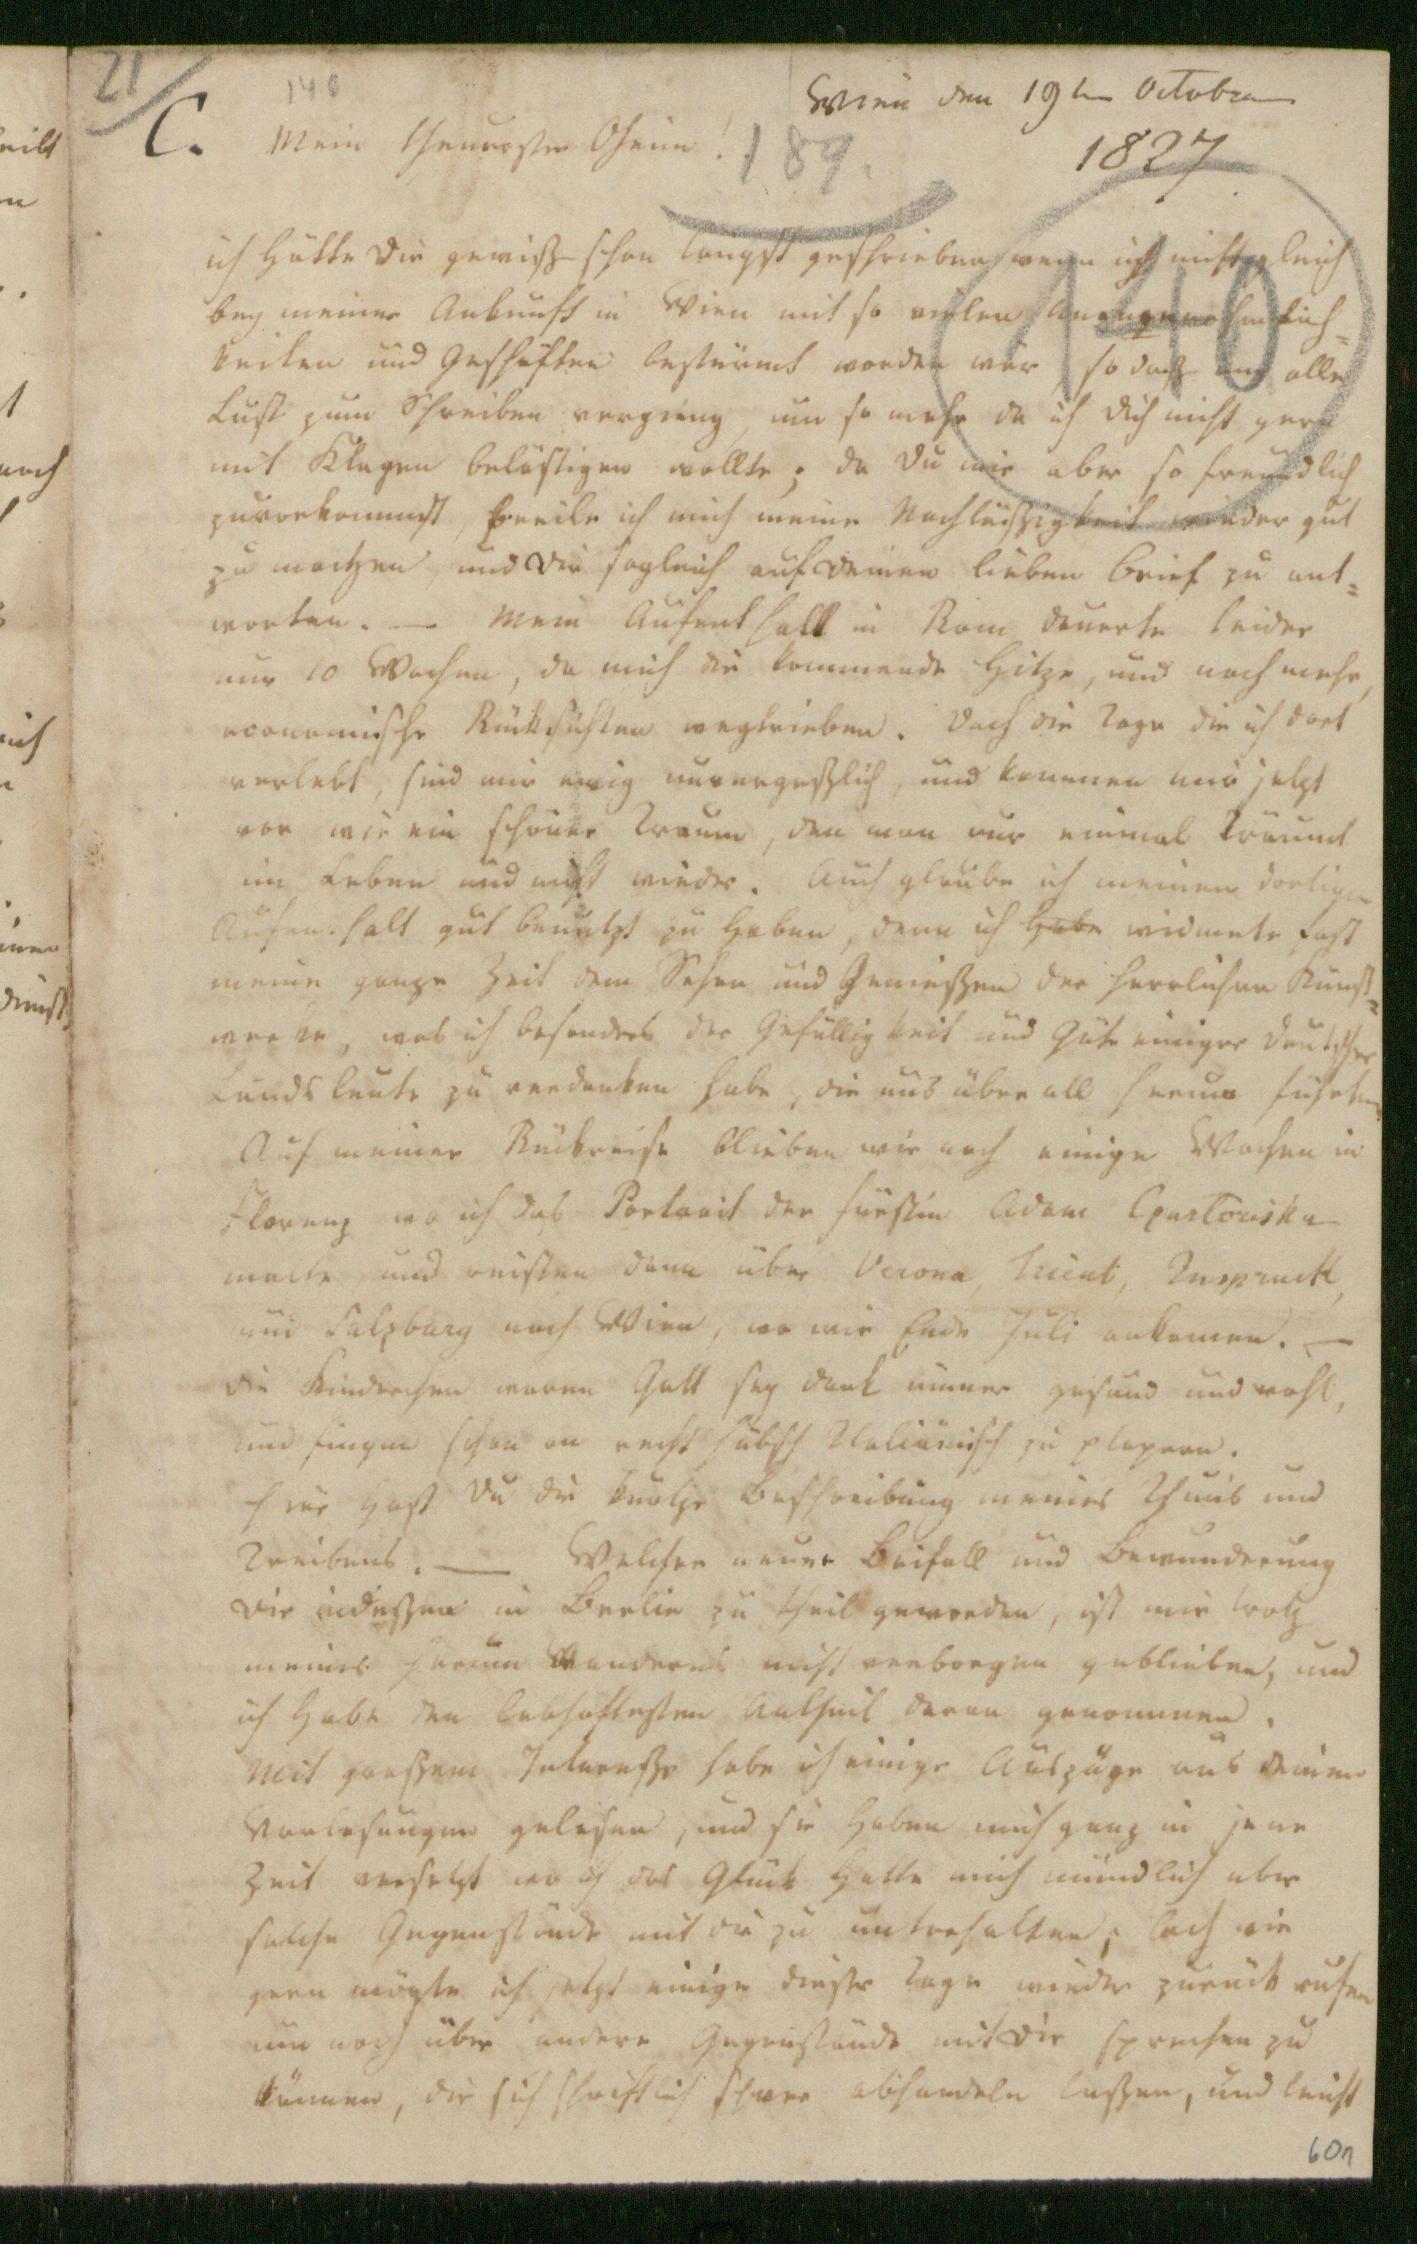 21/
C.
140
Wien den 19ten Octobre
Mein theuerster Oheim!
189.
1827
140
ich hätte Dir gewiß schon längst geschrieben, wenn ich nicht gleich
bey meiner Ankunft in Wien mit so vielen Unangenehmlich=
keiten und Geschäften bestürmt worden wär, so daß mir alle
Lust zum Schreiben vergieng, um so mehr da ich Dich nicht gern
mit Klagen belästigen wollte; da Du mir aber so freundlich
zuvorkommst, beeile ich mich meine Nachläßigkeit wieder gut
zu machen und Dir sogleich auf deinen lieben Brief zu ant=
worten. — Mein Aufenthalt in Rom dauerte leider
nur 10 Wochen, da mich die kommende Hitze, und noch mehr,
economische Rücksichten wegtrieben. Doch die Tage die ich dort
verlebt, sind mir ewig unvergeßlich, und kommen mir jetzt
vor wie ein schöner Traum, den man nur einmal träumt
im Leben und nicht wieder. Auch glaube ich meinen dortigen
Aufenthalt gut benutzt zu haben, denn ich habe widmete fast
meine ganze Zeit dem Sehen und Genießen der herrlichen Kunst=
werke, was ich besonders der Gefälligkeit und Güte einiger deutscher
Landsleute zu verdanken habe, die uns überall herum führten
Auf meiner Rückreise blieben wir noch einige Wochen in
Florenz wo ich das Portrait der Fürstin Adam Czartoriska
malte und reisten dann über Verona, Trient, Inspruck,
und Salzburg nach Wien, wo wir Ende Juli ankamen. —
Die Kinderchen waren Gott sey dank immer gesund und wohl,
und fingen schon an recht hübsch Italiänisch zu plapern.
Hier hast Du die kurtze Beschreibung meines Thuns und
Treibens. — Welcher neuer Beifall und Bewunderung
Dir indeßen in Berlin zu theil geworden, ist mir trotz
meines herum Wanderns nicht verborgen geblieben, und
ich habe den lebhaftesten Antheil daran genommen.
Mit großem Intereße habe ich einige Auszüge aus deinen
Vorlesungen gelesen, und sie haben mich ganz in jene
Zeit versetzt wo ich das Glück hatte mich mündlich über
solche Gegenstände mit dir zu unterhalten; doch wie
gern mögte ich jetzt einige dieser Tage wieder zurück rufen
um noch über andere Gegenstände mit Dir sprechen zu
können, die sich schriftlich schwer abhandeln laßen, und leicht
601